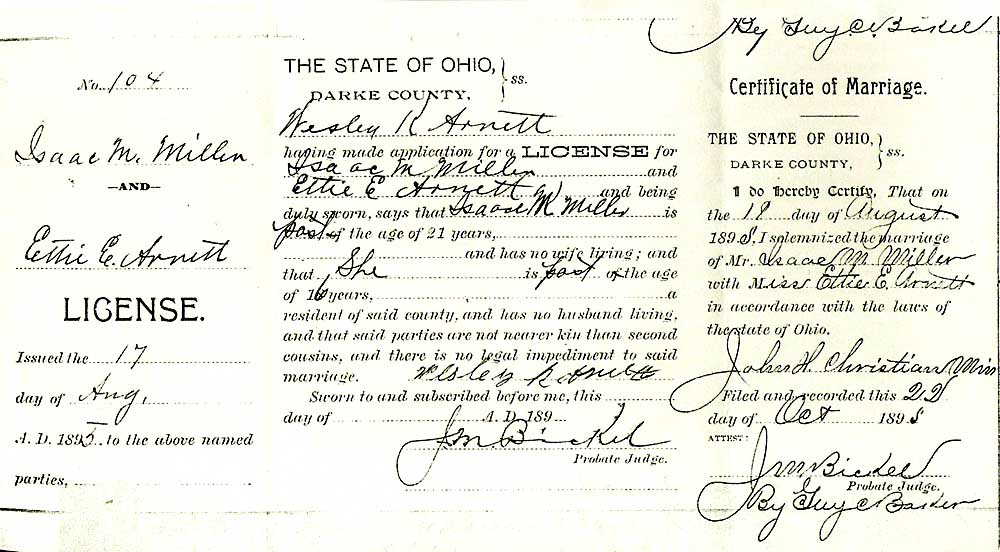 No. 104
Isaac M. Miller
—AND—
Ettie E. Arnett
LICENSE.
Issued the 17
day of Aug,
A. D. 1895 to the above named
parties,
THE STATE OF OHIO, } ss.
DARKE COUNTY,
Wesley K Arnett
having made application for a LICENSE for
Isaac M Miller and
Ettie E Arnett and being
duly sworn, says that Isaac M Miller is
past of the age of 21 years,
and has no wife living; and
that She is past of the age
of years, a
resident of said county, and has no husband living,
and that said parties are not nearer kin than second
cousins, and there is no legal impediment to said
marriage. Wesley K Arnett
Sworn to and subscribed before me, this
day of A. D. 189
J M Bickel
Probate Judge.
By Guy C. Baker
Certificate of Marriage.
THE STATE OF OHIO, } ss.
DARKE COUNTY,
I do Hereby Certify, That on
the 18 day of August
1895, I solemnized the marriage
of Mr. Isaac M Miller
with Miss Ettie E. Arnett
in accordance with the laws of
the state of Ohio.
John H. Christian Min
Filed and recorded this 22
day of Oct 1895
ATTEST:
J M Bickel
Probate Judge.
By Guy C Baker